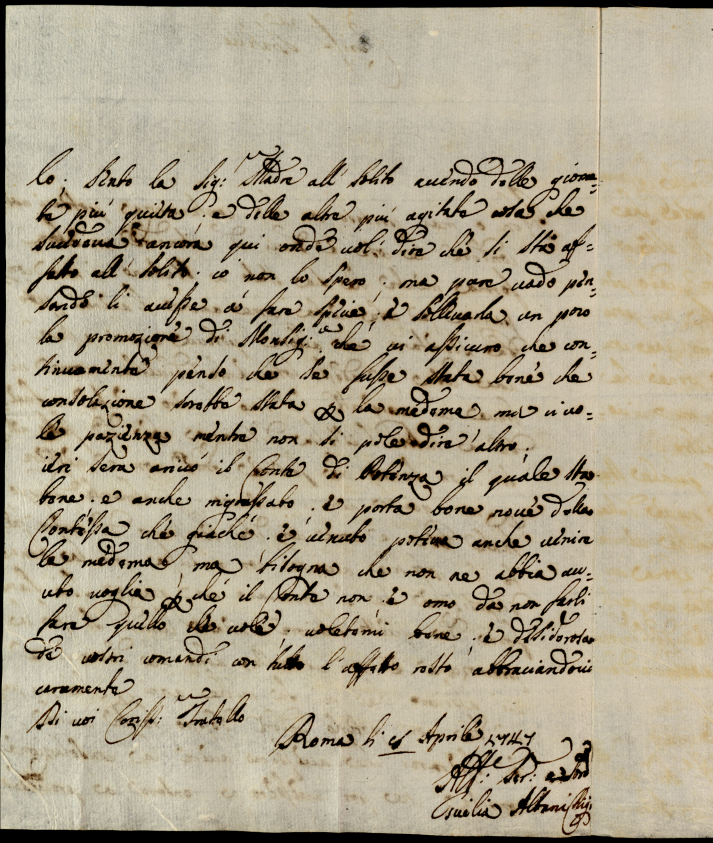 lo. sento la Sig:ra Madre all' solito avendo delle giorna-
te più quiete. e delle altre più agitate cosa che
sucedeva ancora qui onde vol' dire che si stà af-
fatto all' solito. io non lo spero. ma pure vado pen-
sando li avesse à fare specie. è sollevarla un poco
la promozione di Monsig:re che vi assicuro che con-
tinuamente penso che se fusse stata bene che
consolazione sarebbe stata p la medema ma ci vo-
le pazienza mentre non si pole dire altro.
ieri sera arivò il Conte di Potenza il quale sta
bene. e anche ingrassato. è porta bone nove della
Contessa che giache. è venuto poteva anche venire
la medema ma bisogna che non ne abbia au-
uto voglia p che il Conte non è omo da non farli
fare quello che vole. voletemi bene. è desiderosa
de vostri comandi con tutto l'affetto resto abbraciandovi
caramente
Di voi Cariss: Fratello
Roma li Aprile 1747
Aff:ma Ser:
Albani Chigi